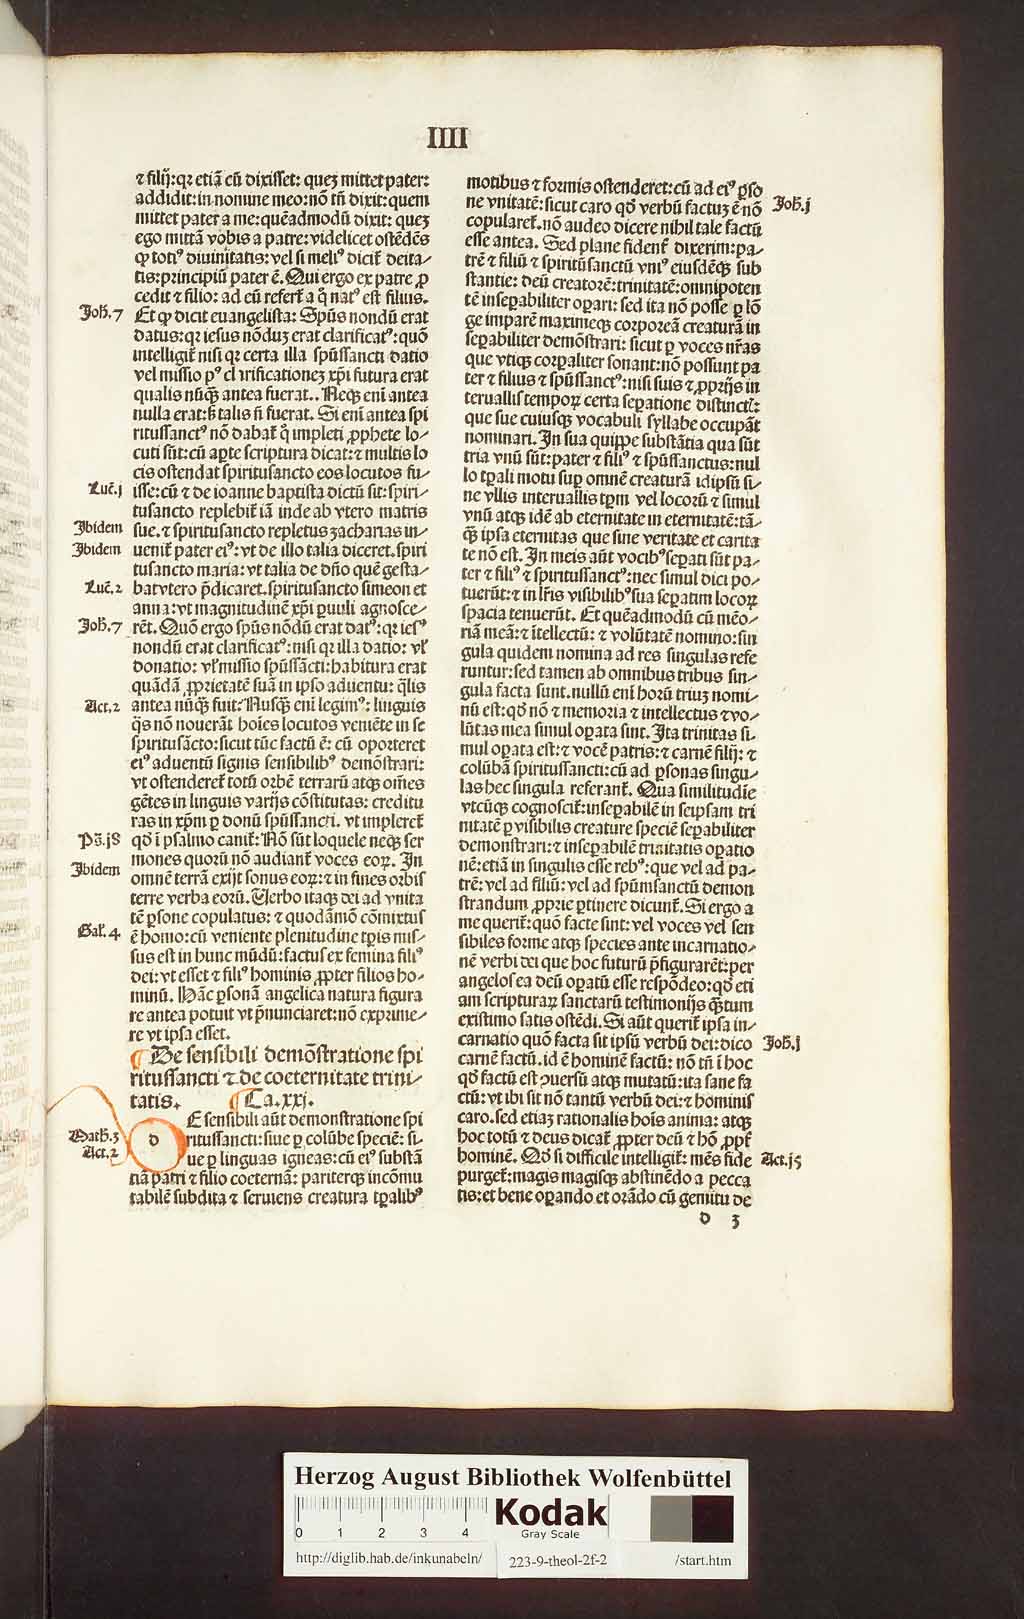 IIII
⁊ filij: qꝛ etiā cū dixiſſet: quez mittet pater:
addidit: in nomine meo: nō tñ dixit: quem
mittet pater a me: quēadmodū dixit: quez
ego mittā vobis a patre: videlicet oſtēdēs
ꝙ totiꝰ diuinitatis: vel ſi meliꝰ dicit̄ deita⸗
tis: principiū pater ē. Qui ergo ex patre ꝓ
cedit ⁊ filio: ad eū refert̄ a q̊ natꝰ eſt filius.
Joh̄. 7 Et ꝙ dicit euangeliſta: Spūs nondū erat
datus: qꝛ ieſus nōduz erat clarificatꝰ: quō
intelligit̄ niſi qꝛ certa illa ſpūſſancti datio
vel miſſio pꝰ clarificationez xp̄i futura erat
qualis nūꝗ̄ antea fuerat.. Neqꝫ eni antea
nulla erat: ſꝫ talis ñ fuerat. Si eni antea ſpi
rituſſanctꝰ nō dabat̄ q̊ impleti ꝓphete lo⸗
cuti ſūt: cū aꝑte ſcriptura dicat: ⁊ multis lo
cis oſtendat ſpirituſancto eos locutos fu⸗
Luc̄. j iſſe: cū ⁊ de ioanne baptiſta dictū ſit: ſpiri⸗
tuſancto replebit̄ iā inde ab vtero matris
Ibidem ſue. ⁊ ſpirituſancto repletus zacharias in⸗
Ibidem uenit̄ pater eiꝰ: vt de illo talia diceret. ſpiri
tuſancto maria: vt talia de dño quē geſta⸗
Luc̄. 2 bat vtero p̄dicaret. ſpirituſancto ſimeon et
anna: vt magnitudinē xp̄i ꝑuuli agnoſce⸗
Joh̄. 7 rēt. Quō ergo ſpūs nōdū erat datꝰ: qꝛ ieſꝰ
nondū erat clarificatꝰ: niſi qꝛ illa datio: vł
donatio: vł miſſio ſpūſſācti: habitura erat
quādā ꝓprietatē ſuā in ipſo aduentu: q̄lis
Act. 2 antea nūꝗ̄ fuit: Nuſꝗ̄ eni legimꝰ: linguis
q̄s nō nouerāt hoīes locutos veniēte in ſe
ſpirituſācto: ſicut tūc factū ē: cū oporteret
eiꝰ aduentū ſignis ſenſibilibꝰ demōſtrari:
vt oſtenderet̄ totū orbē terrarū atqꝫ om̄es
gētes in linguis varijs cōſtitutas: creditu
ras in xp̄m ꝑ donū ſpūſſancti. vt impleret̄
Pſ̄. j8 qd̄ ī pſalmo canit̄: Nō ſūt loquele neqꝫ ſer
mones quorū nō audiant̄ voces eoꝝ. In
Ibidem omnē terrā exijt ſonus eoꝝ: ⁊ in fines orbis
terre verba eorū. Verbo itaqꝫ dei ad vnita
tē ꝑſone copulatus: ⁊ quodāmō cōmixtus
Gal̄. 4 ē homo: cū veniente plenitudine tꝑis miſ⸗
ſus eſt in hunc mūdū: factus ex femina filiꝰ
dei: vt eſſet ⁊ filiꝰ hominis ꝓpter filios ho⸗
minū. Hāc ꝑſonā angelica natura figura
re antea potuit vt p̄nunciaret: nō exprime⸗
re vt ipſa eſſet.
¶ De ſenſibili demōſtratione ſpi
rituſſancti ⁊ de coeternitate trini⸗
tatis. ¶ Ca. xxi.
d E ſenſibili aūt demonſtratione ſpi
Math̄. 3 rituſſancti: ſiue ꝑ colūbe ſpeciē: ſi⸗
Act. 2 ue ꝑ linguas igneas: cū eiꝰ ſubſtā
tiā patri ⁊ filio coeternā: pariterqꝫ incōmu
tabilē ſubdita ⁊ ſeruiens creatura tꝑalibꝰ
motibus ⁊ formis oſtenderet: cū ad eiꝰ ꝑſo
ne vnitatē: ſicut caro qd̄ verbū factuz ē nō Joh̄. j
copularet̄. nō audeo dicere nihil tale factū
eſſe antea. Sed plane fident̄ dixerim: pa⸗
trē ⁊ filiū ⁊ ſpirituſanctū vniꝰ eiuſdēqꝫ ſub
ſtantie: deū creatorē: trinitatē: omnipoten
tē inſeꝑabiliter oꝑari: ſed ita nō poſſe ꝑ lō
ge imparē maximeqꝫ corporeā creaturā in
ſeꝑabiliter demōſtrari: ſicut ꝑ voces nr̄as
que vtiqꝫ corꝑaliter ſonant: nō poſſunt pa
ter ⁊ filius ⁊ ſpūſſanctꝰ: niſi ſuis ⁊ ꝓprijs in
teruallis tempoꝝ certa ſeꝑatione diſtinctꝭ:
que ſue cuiuſqꝫ vocabuli ſyllabe occupāt
nominari. In ſua quippe ſubſtātia qua ſūt
tria vnū ſūt: pater ⁊ filiꝰ ⁊ ſpūſſanctus: nul
lo tꝑali motu ſuꝑ omnē creaturā idipſū ſi⸗
ne vllis interuallis tꝑm vel locorū ⁊ ſimul
vnū atqꝫ idē ab eternitate in eternitatē: tā⸗
ꝗ̄ ipſa eternitas que ſine veritate et carita
te nō eſt. In meis aūt vocibꝰ ſeꝑati ſūt pa⸗
ter ⁊ filiꝰ ⁊ ſpirituſſanctꝰ: nec ſimul dici po⸗
tuerūt: ⁊ in lr̄is viſibilibꝰ ſua ſeꝑatim locoꝝ
ſpacia tenuerūt. Et quēadmodū cū mēo⸗
riā meā: ⁊ ītellectū: ⁊ volūtatē nomino: ſin
gula quidem nomina ad res ſingulas refe
runtur: ſed tamen ab omnibus tribus ſin⸗
gula facta ſunt. nullū eni horū triuz nomi⸗
nū eſt: qd̄ nō ⁊ memoria ⁊ intellectus ⁊ vo⸗
lūtas mea ſimul oꝑata ſint. Ita trinitas ſi⸗
mul oꝑata eſt: ⁊ vocē patris: ⁊ carnē filij: ⁊
colūbā ſpirituſſancti: cū ad ꝑſonas ſingu⸗
las hec ſingula referant̄. Qua ſimilitudīe
vtcūqꝫ cognoſcit̄: inſeꝑabilē in ſeipſam tri
nitatē ꝑ viſibilis creature ſpeciē ſeꝑabiliter
demonſtrari: ⁊ inſeꝑabilē trinitatis oꝑatio
nē: etiā in ſingulis eſſe rebꝰ: que vel ad pa⸗
trē: vel ad filiū: vel ad ſpūmſanctū demon
ſtrandum ꝓprie ꝑtinere dicunt̄. Si ergo a
me querit̄: quō facte ſint: vel voces vel ſen
ſibiles forme atqꝫ ſpecies ante incarnatio⸗
nē verbi dei que hoc futurū p̄figurarēt: per
angelos ea deū oꝑatū eſſe reſpōdeo: qd̄ eti
am ſcripturaꝝ ſanctarū teſtimonijs ꝗ̄tum
exiſtimo ſatis oſtēdi. Si aūt querit̄ ipſa in⸗
carnatio quō facta ſit ipſū verbū dei: dico Joh̄. j
carnē factū. id ē hominē factū: nō tñ ī hoc
qd̄ factū eſt ꝯuerſū atqꝫ mutatū: ita ſane fa
ctū: vt ibi ſit nō tantū verbū dei: ⁊ hominis
caro. ſed etiaz rationalis hoīs anima: atqꝫ
hoc totū ⁊ deus dicat̄ ꝓpter deū ⁊ hō ꝓpt̄
hominē. Qd̄ ſi difficile intelligit̄: mēs fide Act. j5
purget̄: magis magiſqꝫ abſtinēdo a pecca
tis: et bene oꝑando et orādo cū gemitu de
d 3
Herzog August Bibliothek Wolfenbüttel
0 1 2 3 4
Kodak
Gray Scale
http://diglib.hab.de/inkunabeln/ 223-9-theol-2f-2 /start.htm